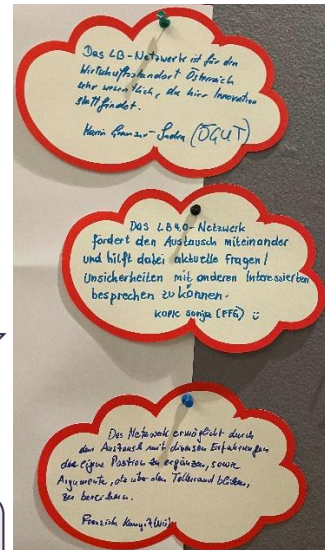 Das LB-Netzwerk ist für den
Wirtschaftsstandort Österreich
sehr wesentlich, da hier Innovation
stattfindet.
Karin Granzer-Sudra (ÖGUT)
Das LB4.0-Netzwerk
fördert den Austausch miteinander
und hilft dabei aktuelle Fragen/
Unsicherheiten mit anderen Interessierten
besprechen zu können.
KOPIC Sonja (FFG) ü
Das Netzwerk ermöglicht durch
den Austausch mit diversen Erfahrungen
die eigene Position zu ergänzen, sowie
Argumente, als über den Tellerrand blicken,
zu bereichern.
Franziska